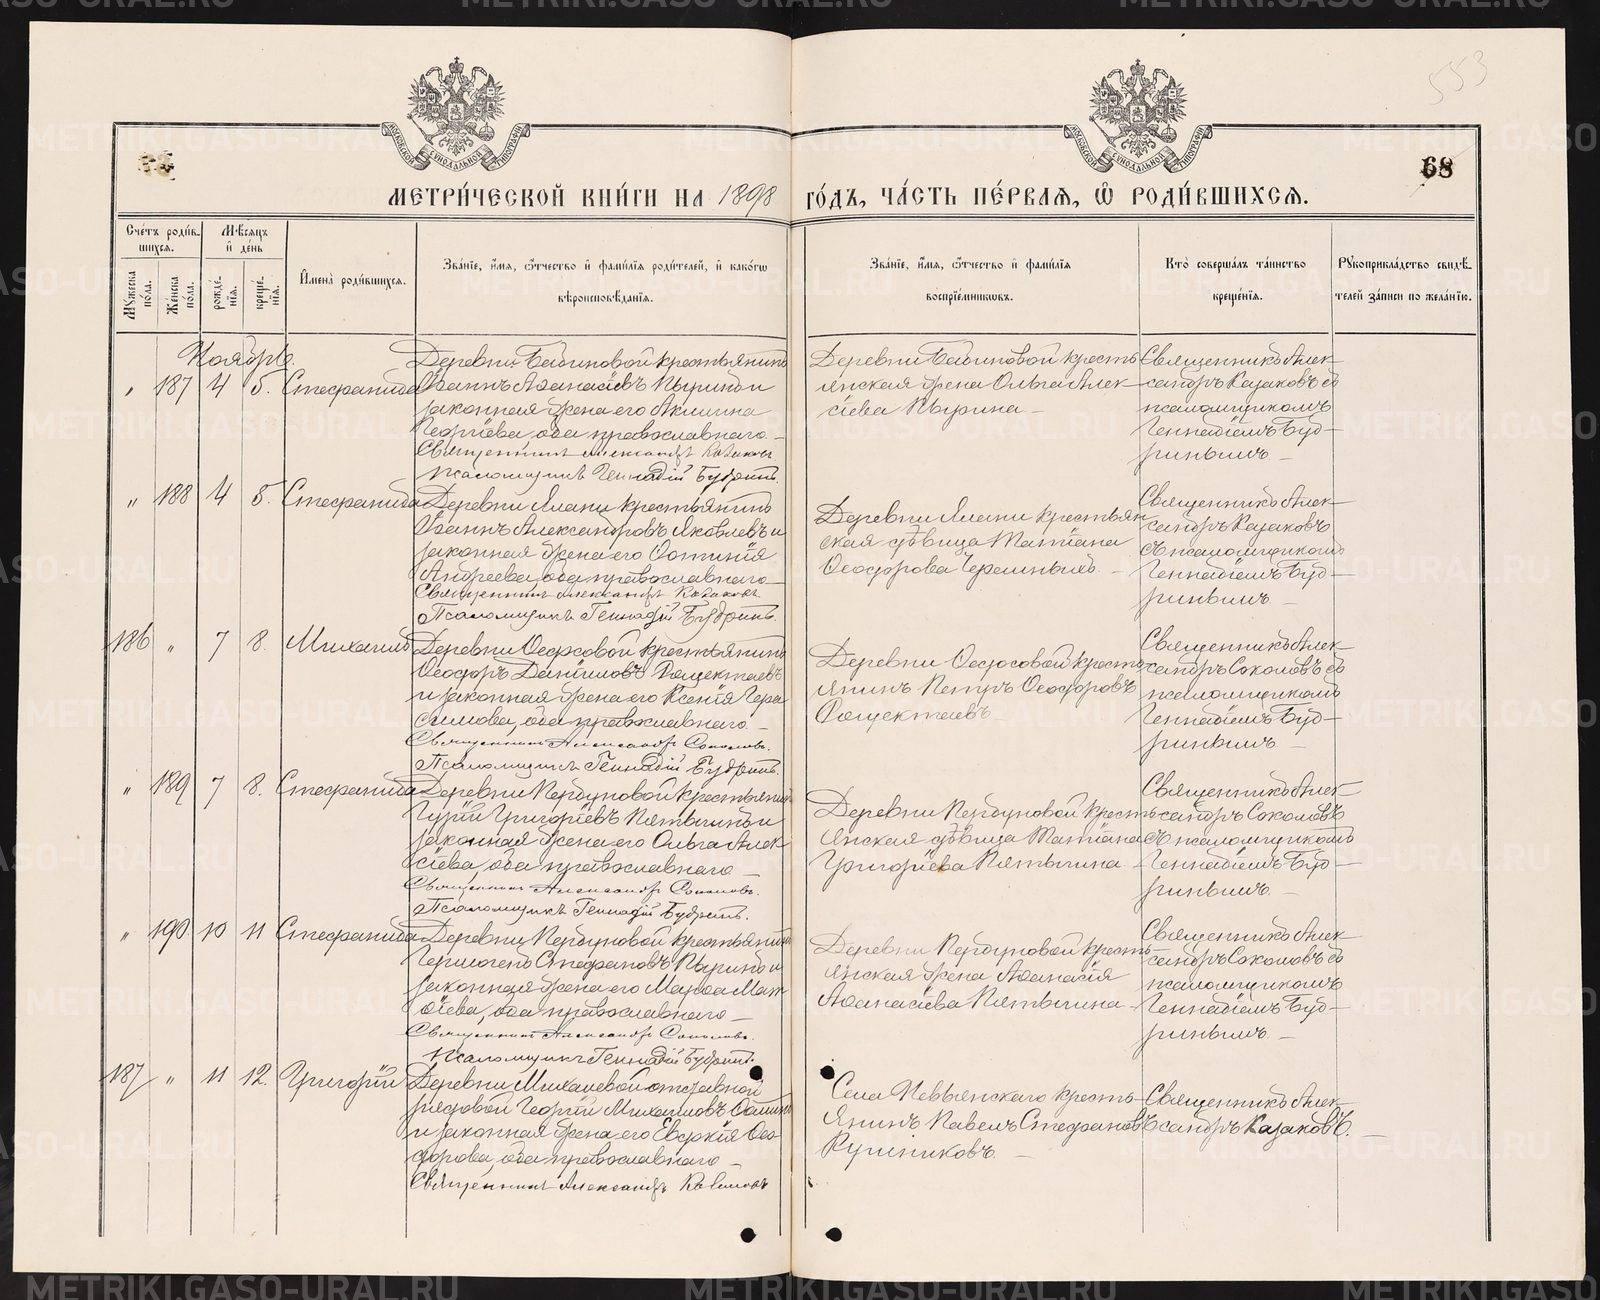 553
68
МЕТРИ́ЧЕСКОЙ КНИ́ГИ НА 1898 ГО́ДЪ, ЧА́СТЬ ПЕ́РВАЯ, Ѡ РОДИ́ВШИХСЯ.
Сче́тъ роди́в-
шихся.
Мꙋжеска по́ла.
Же́нска по́ла.
Мѣ́сяцъ и де́нь
рожде́-
нїя.
креще́-
нїя.
Имена̀ роди́вшихся.
Зва́нїе, и́мя, ѻ́тчество и фами́лїя роди́телей, и како́гѡ
вѣроисповѣ́данїя.
Зва́нїе, и́мя, ѻ́тчество и фами́лїя
воспрїе́мниковъ.
Кто̀ соверша́лъ та́инство
креще́нїя.
Рꙋкоприкла́дство свидѣ́-
телей за́писи по жела́нїю.
Ноябрь.
„ 187 4 5. Стефанида
Деревни Бабиновой крестьянинъ
Іоаннъ Аѳанасіевъ Пыринъ и
законная жена его Акилина
Георгіева, оба православнаго. –
Священникъ Александръ Казаковъ
Псаломщикъ Геннадій Будринъ.
Деревни Бабиновой кресть-
янская жена Ольга Алек-
сіева Пырина –
Священникъ Алек-
сандръ Казаковъ съ
псаломщикомъ
Геннадіемъ Буд-
ринымъ –
„ 188 4 5. Стефанида
Деревни Ялани крестьянинъ
Іоаннъ Александровъ Яковлевъ и
законная жена его Фотинія
Андреева, оба православнаго –
Священникъ Александръ Казаковъ.
Псаломщикъ Геннадій Будринъ.
Деревни Ялани крестьян-
ская дѣвица Татіана
Ѳеодорова Черемныхъ. –
Священникъ Алек-
сандръ Казаковъ
съ псаломщикомъ
Геннадіемъ Буд-
ринымъ –
186 „ 7 8. Михаилъ
Деревни Ѳедосовой крестьянинъ
Ѳеодоръ Даніиловъ Рощектаевъ
и законная жена его Ксенія Гера-
симова, оба православнаго –
Священникъ Александръ Соколовъ.
Псаломщикъ Геннадій Будринъ.
Деревни Ѳедосовой кресть-
янинъ Петръ Ѳеодоровъ
Рощектаевъ –
Священникъ Алек-
сандръ Соколовъ съ
псаломщикомъ
Геннадіемъ Буд-
ринымъ –
„ 189 7 8. Стефанида
Деревни Первуновой крестьянинъ
Гурій Григоріевъ Пятыгинъ и
законная жена его Ольга Алек-
сіева, оба православнаго –
Священникъ Александръ Соколовъ.
Псаломщикъ Геннадій Будринъ.
Деревни Первуновой кресть-
янская дѣвица Татіана
Григоріева Пятыгина –
Священникъ Алек-
сандръ Соколовъ
съ псаломщикомъ
Геннадіемъ Буд-
ринымъ –
„ 190 10 11 Стефанида
Деревни Первуновой крестьянинъ
Гермогенъ Стефановъ Пыринъ и
законная жена его Марѳа Мат-
ѳіева, оба православнаго –
Священникъ Александръ Соколовъ.
Псаломщикъ Геннадій Будринъ.
Деревни Первуновой кресть-
янская жена Аѳанасія
Аѳанасіева Пятыгина –
Священникъ Алек-
сандръ Соколовъ съ
псаломщикомъ
Геннадіемъ Буд-
ринымъ –
187 „ 11 12. Григорій
Деревни Михалевой отставной
рядовой Георгій Михаиловъ
и законная жена его Евдокія Ѳео-
дорова, оба православнаго –
Священникъ Александръ Казаковъ
Села Невьянскаго кресть-
янинъ Павелъ Стефановъ
Русниковъ –
Священникъ Алек-
сандръ Казаковъ. –